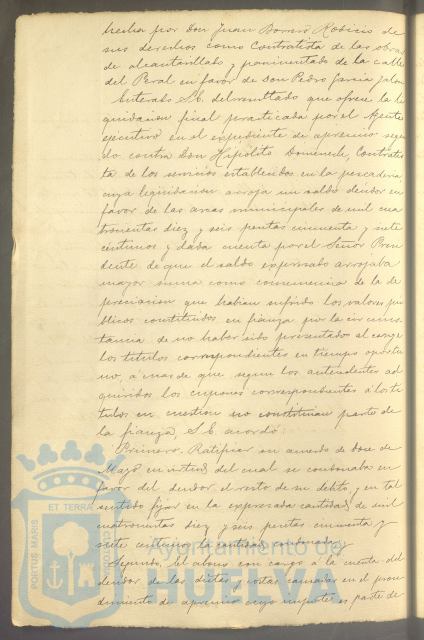 hecha por Don Juan Borrero Robicio de
sus derechos como Contratista de las obras
de alcantarillado y pavimentado de la calle
del Peral en favor de Don Pedro Garcia Jalon
Enterado S.E. del resultado que ofrece la li
quidacion final practicada por el Agente
ejecutivo en el expediente de apremio segui
do contra Don Hipólito Domenech, Contratis
ta de los servicios establecidos en la pescaderia
cuya liquidacion arroja un saldo deudor en
favor de las arcas municipales de mil cua
trocientas diez y seis pesetas cincuenta y siete
centimos y dada cuenta por el Señor Presi
dente de que el saldo expresado arrojaba
mayor suma como consecuencia de la de
preciacion que habian sufrido los valores pu
blicos constituidos en fianza por la circuns
tancia de no haber sido presentados al cange
los titulos correspondientes en tiempo oportu
no, a mas de que segun los antecedentes ad
quiridos los cupones correspondientes á los ti
tulos en cuestion no constituian parte de
la fianza, S.E. acordó:
Primero. Ratificar su acuerdo de doce de
Mayo en virtud del cual se condonaba en
favor del deudor el resto de su debito, y en tal
sentido fijar en la expresada cantidad de mil
cuatrocientas diez y seis pesetas cincuenta y
siete centimos la cantidad condonada, y
Segundo, el abono con cargo a la cuenta del
deudor de las dietas y costas causadas en el proce
dimiento de apremio cuyo importe es parte de
PORTUS MARIS ET TERRAE CUSTODIA
Ayuntamiento de
HUELVA